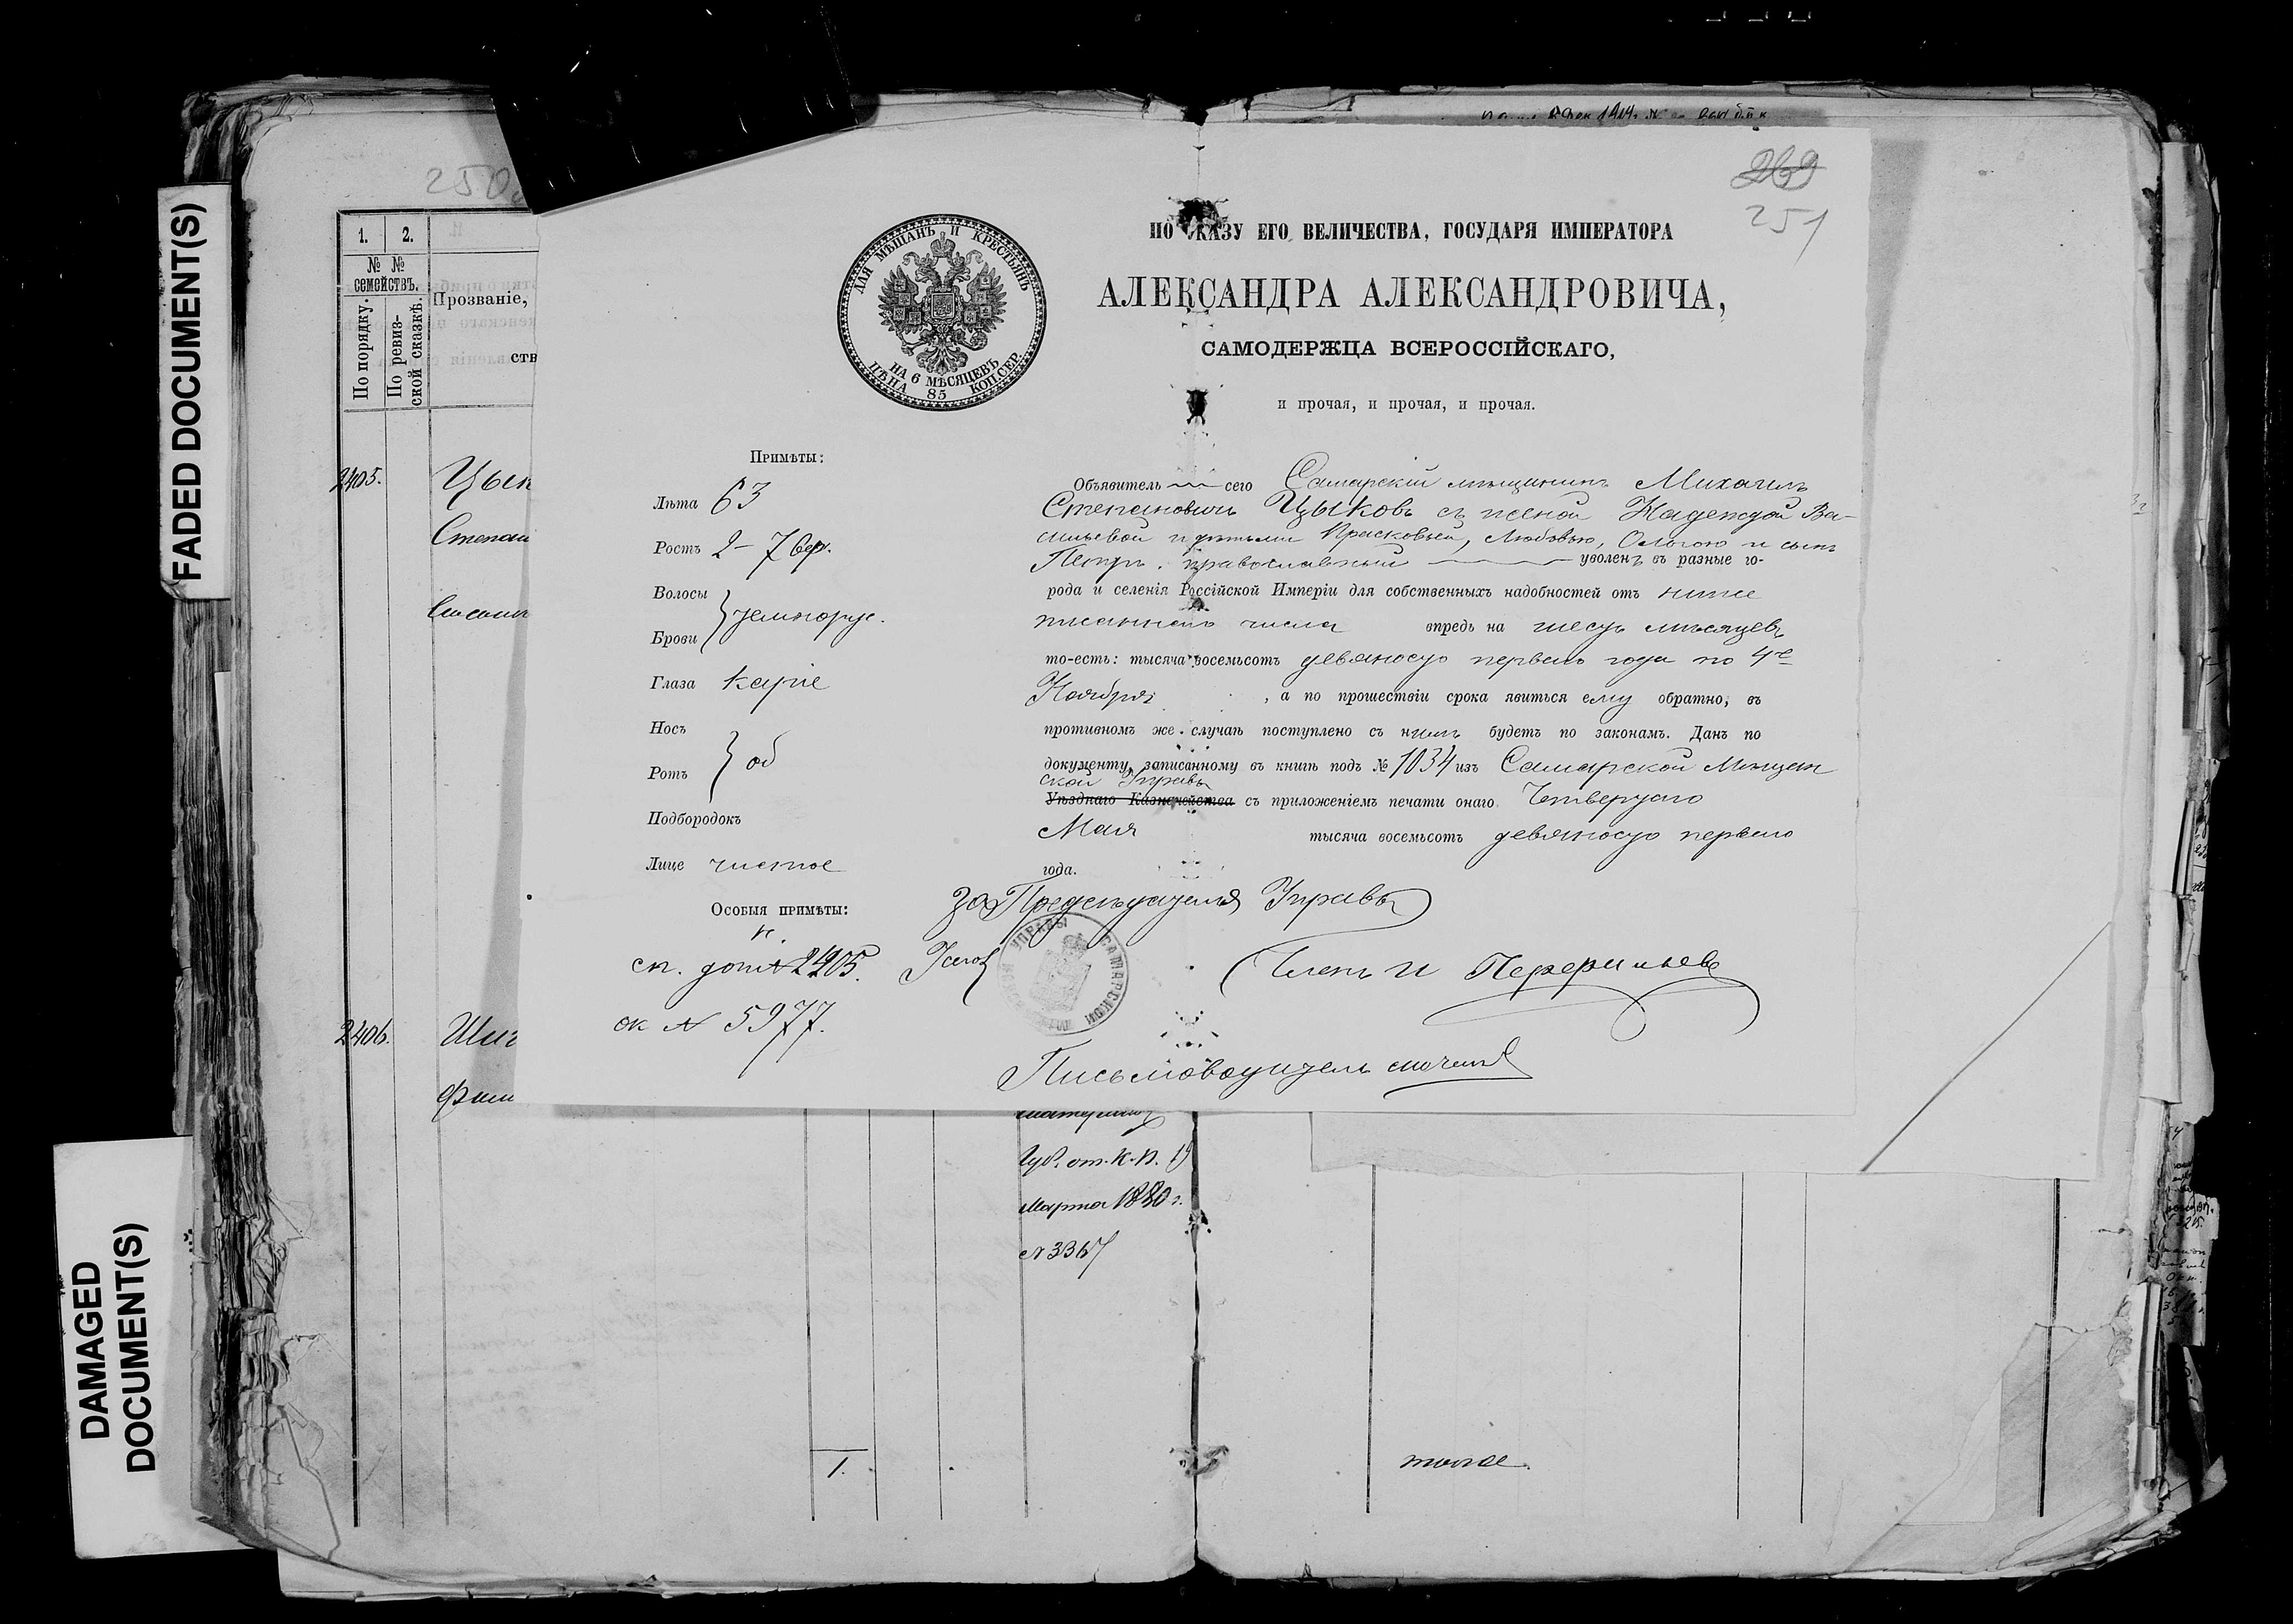 FADED DOCUMENT(S)
DAMAGED
DOCUMENT(S)
250
1. 2.
№ №
семействъ.
По порядку.
По ревиз-
ской сказкѣ.
Прозваніе,
ств
2405. Цык
Степан
2406.
269
251
ДЛЯ МѢЩАНЪ И КРЕСТЬЯНЪ
НА 6 МѢСЯЦЕВЪ
ЦѢНА 85 КОП. СЕР.
ПО УКАЗУ ЕГО ВЕЛИЧЕСТВА, ГОСУДАРЯ ИМПЕРАТОРА
АЛЕКСАНДРА АЛЕКСАНДРОВИЧА,
САМОДЕРЖЦА ВСЕРОССІЙСКАГО,
и прочая, и прочая, и прочая.
Примѣты:
Лѣта 63
Ростъ 2 – 7 вер.
Волосы
Брови } темнорус.
Глаза каріе
Носъ
Ротъ } об
Подбородокъ
Лице чистое
Особыя примѣты:
н.
сп. доп № 2405.
ок № 5977.
Объявитель сего Самарскій мѣщанинъ Михаилъ
Степановичъ Цыковъ съ женой Надеждой Ва-
сильевой и дѣтьми Прасковьей, Любовью, Ольгою и сынъ
Петръ. православный уволенъ въ разные го-
рода и селенія Россійской Имперіи для собственныхъ надобностей отъ ниже
писаннаго числа впредь на шесть мѣсяцевъ
то-есть: тысяча восемьсотъ девяносто перваго года по 4е
Ноября , а по прошествіи срока явиться ему обратно; въ
противномъ же случаѣ поступлено съ нимъ будетъ по законамъ. Данъ по
документу, записанному въ книгѣ подъ № 1034 изъ Самарской Мѣщан
ской Управы
Уѣзднаго Казначейства съ приложеніемъ печати онаго. Четвертаго
Мая тысяча восемьсотъ девяносто перваго
года.
За Предсѣдателя Управы
УПРАВЫ САМАРСКОЙ
Членъ И
Письмоводитель
Губ. от. К. П. 19
Марта 1880 г.
№ 3367
1.
тоже.